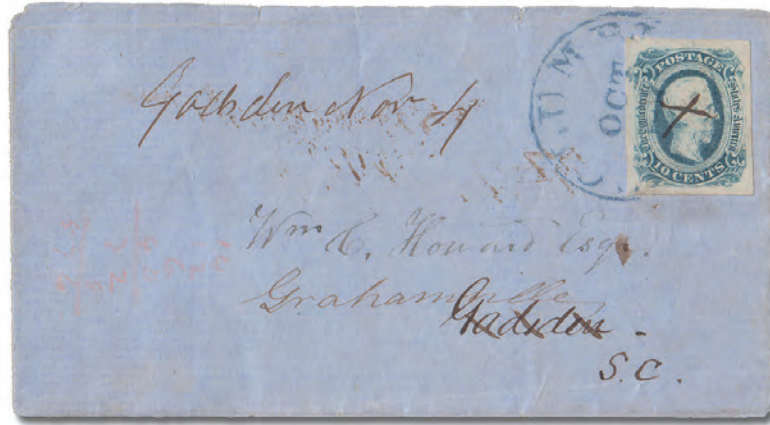 Gadsden Nov 4
COLUMB
OCT
POSTAGE
The Confederate States America
10 CENTS
Wm C. Howard Esqr.
Grahamville
Gadsden
S.C.